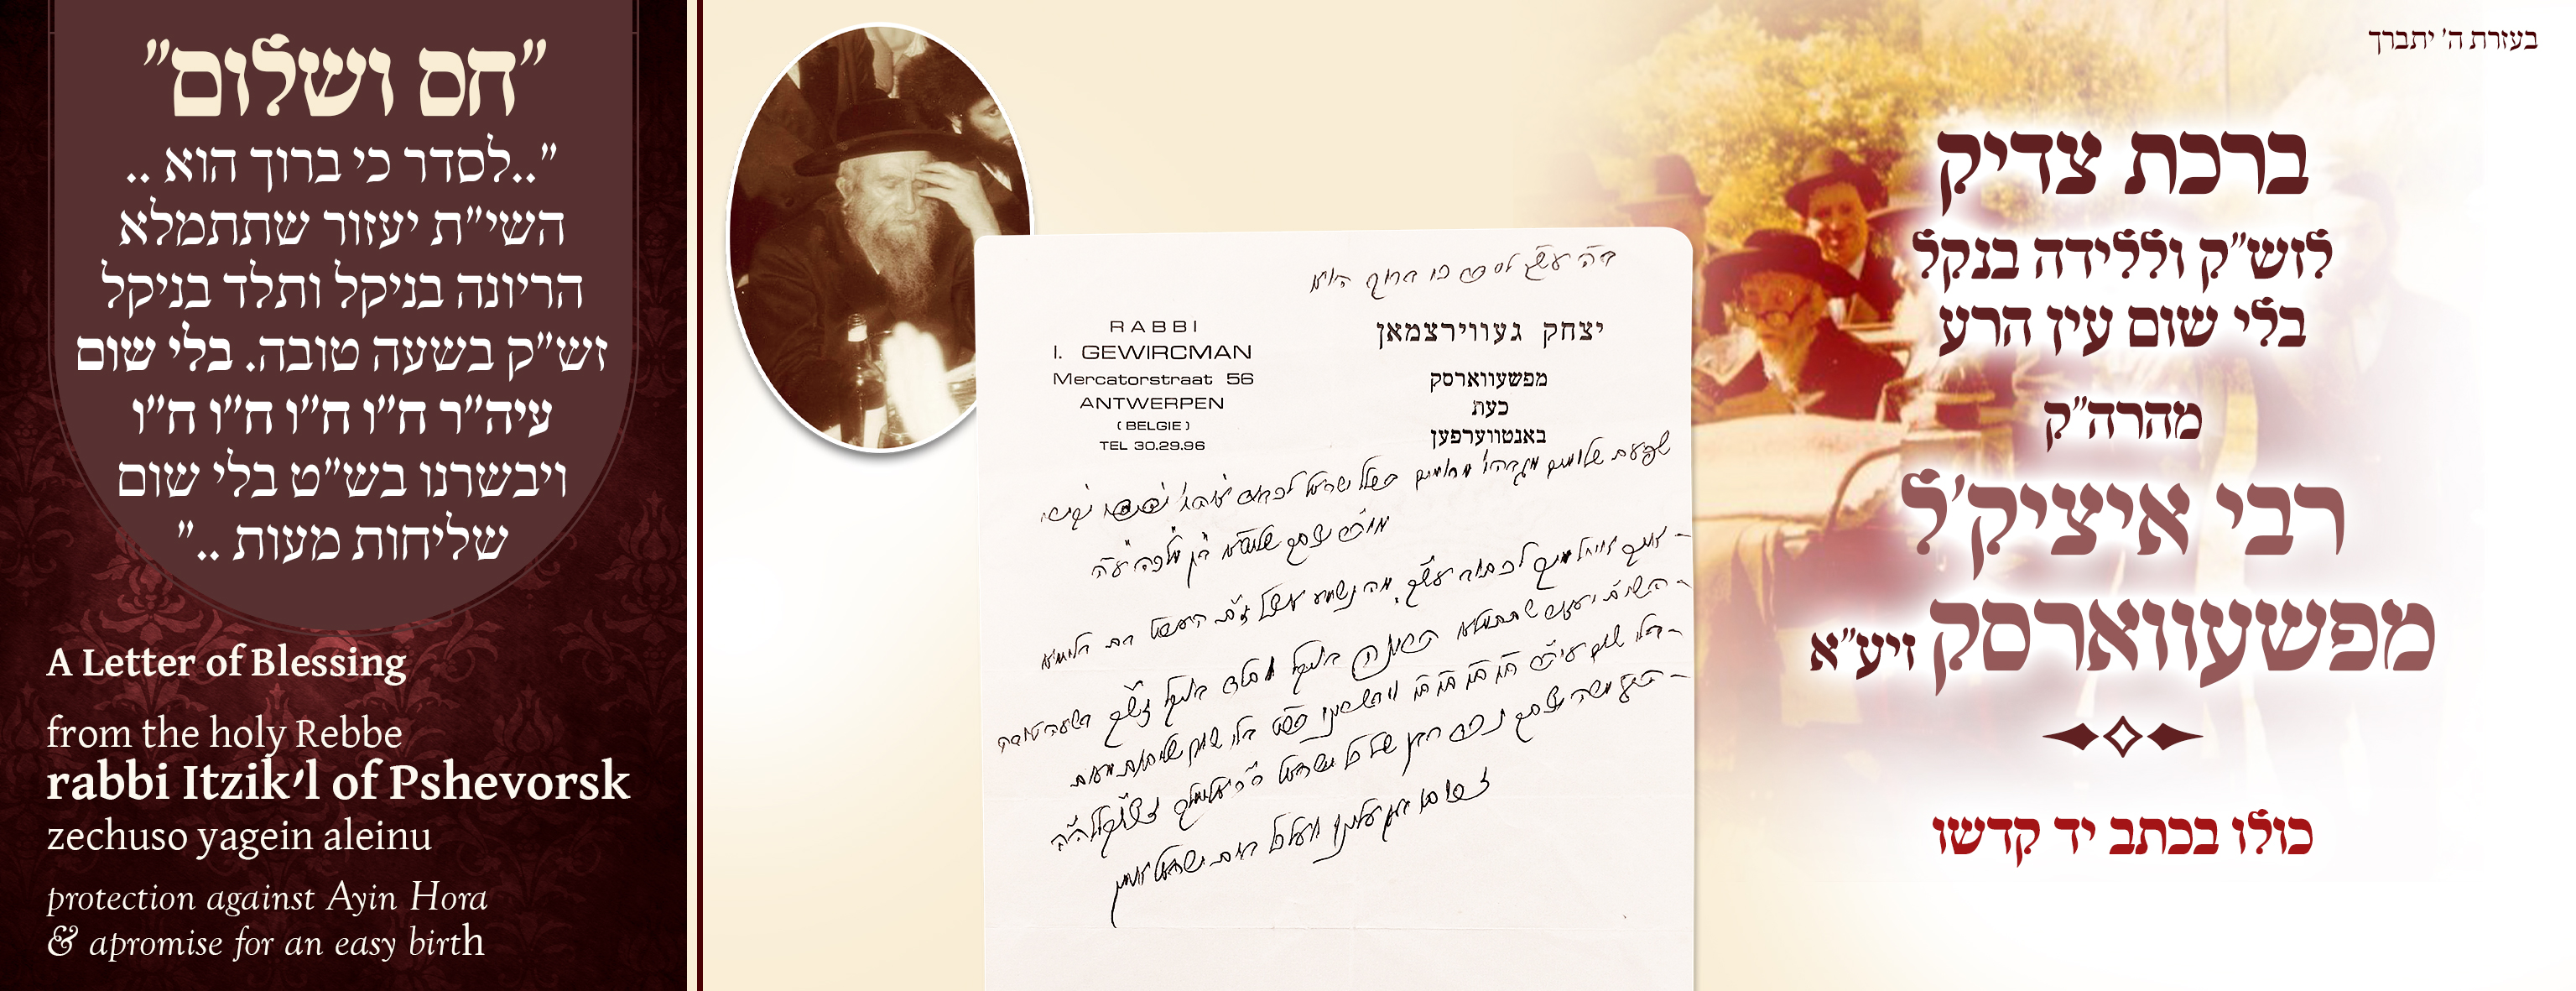 בעזרת ה' יתברך
ברכת צדיק
לזש"ק וללידה בנקל
בלי שום עין הרע
מהרה"ק
רבי איציק'ל
מפשעווארסק זיע"א
כולו בכתב יד קדשו
RABBI
I. GEWIRCMAN
Mercatorstraat 56
ANTWERPEN
( BELGIE )
TEL 30.29.96
יצחק געווירצמאן
מפשעווארסק
כעת
באנטווערפען
השי"ת יעזור שתתמלא הריונה בניקל ותלד בניקל זש"ק בשעה טובה
בלי שום עיה"ר ח"ו ח"ו ח"ו ח"ו ויבשרנו בש"ט בלי שום שליחות מעות
"חס ושלום"
"..לסדר כי ברוך הוא ..
השי"ת יעזור שתתמלא
הריונה בניקל ותלד בניקל
זש"ק בשעה טובה. בלי שום
עיה"ר ח"ו ח"ו ח"ו ח"ו
ויבשרנו בש"ט בלי שום
שליחות מעות .."
A Letter of Blessing
from the holy Rebbe
rabbi Itzik'l of Pshevorsk
zechuso yagein aleinu
protection against Ayin Hora
& apromise for an easy birth